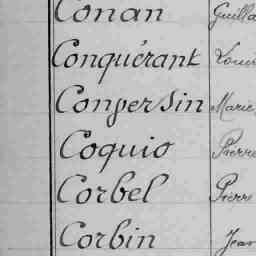 Conan Guilla
Conquérant Loui
Conpersin Marie
Coquio Pierre
Corbel Pierr
Corbin Jean